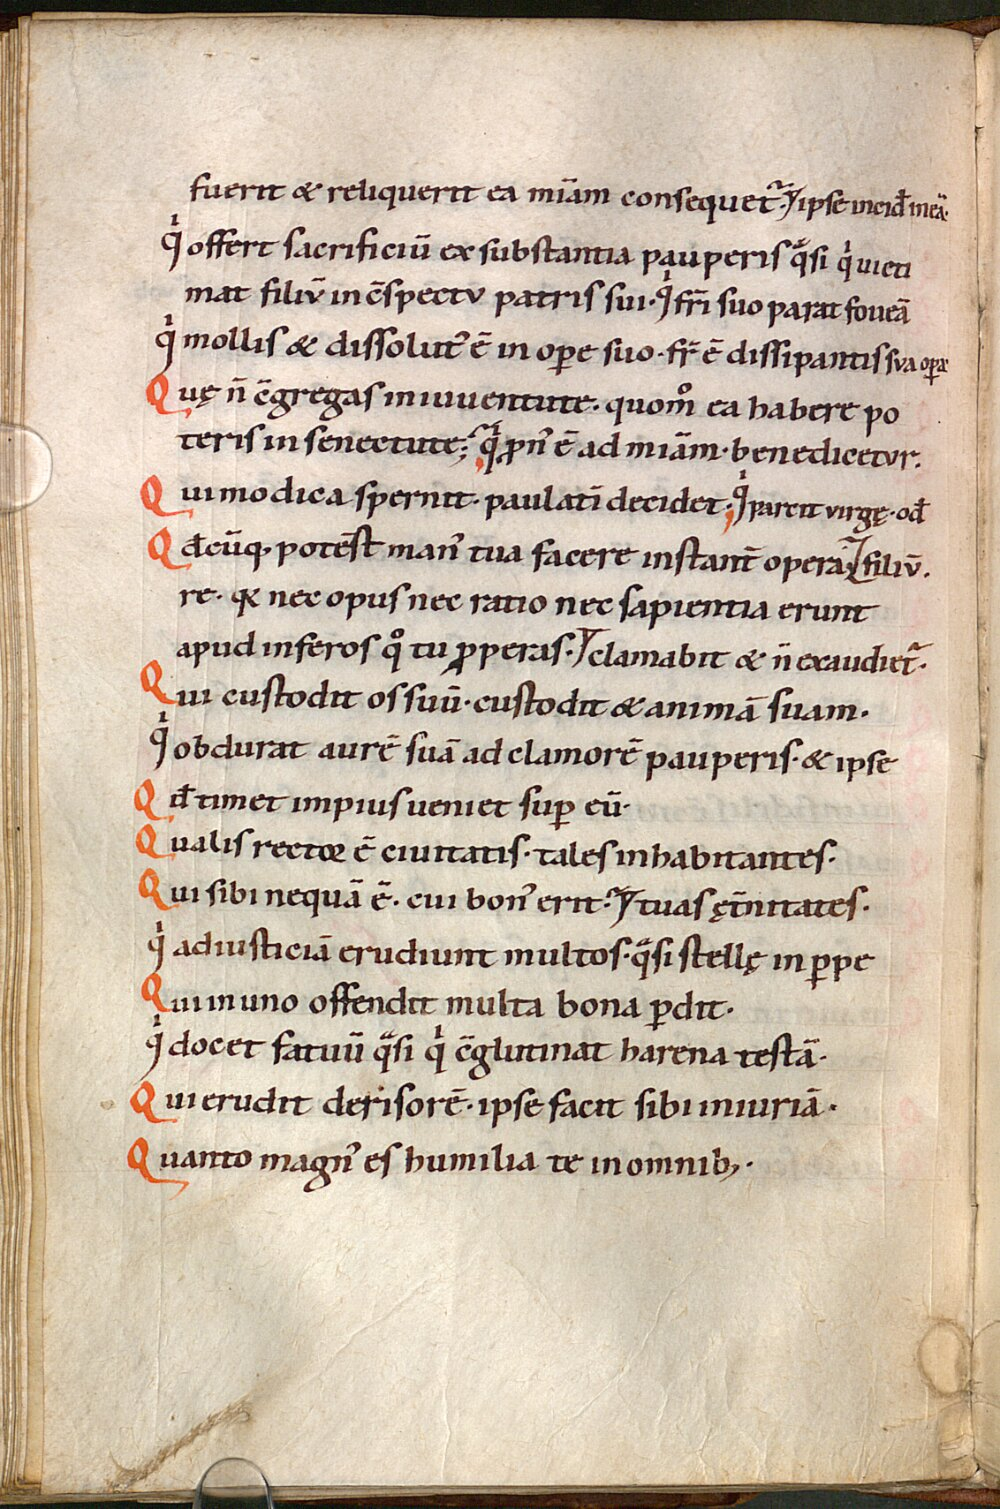 fuerit & reliquerit ea mīam consequet᷑. ipse incid̄ in eā.
qͥ offert sacrificiū ex substantia pauperis qᵃ̄si qͥ uicti
mat filiū in c̄spectu patris sui. qͥ fr̄i suo parat foueā
qͥ mollis & dissolut᾿ ē in oꝑe suo. fr̄ ē dissipantis sua oꝑa.
Quę n̄ c̄gregas in iuuentute. quom̊ ea habere po
teris in senectute; qͥ ꝓn᾿ ē ad mīam. benedicetur.
Qui modica spernit. paulatī decidet. qͥ parcit virgę. od̄
Qd̄cūq, potest man᾿ tua facere instant̄ opera filiū.
re. qꝛ nec opus nec ratio nec sapientia erunt
apud inferos q̊ tu ꝓperas. clamabit & n̄ exaudiet᷑.
Qui custodit os suū. custodit & animā suam.
qͥ obdurat aurē suā ad clamorē pauperis. & ipse
Qd̄ timet impius ueniet suꝑ eū.
Qualis rector ē ciuitatis. tales inhabitantes.
Qui sibi nequā ē. cui bon᾿ erit. tuas ęt̄nitates.
qͥ ad iusticiā erudiunt multos. qᵃ̄si stellę in ꝑpe
Qui in uno offendit multa bona ꝑdit.
qͥ docet fatuū qᵃ̄si qͥ c̄glutinat harena testā.
Qui erudit derisorē. ipse facit sibi iniuriā.
Quanto magn᾿ es humilia te in omnib,.